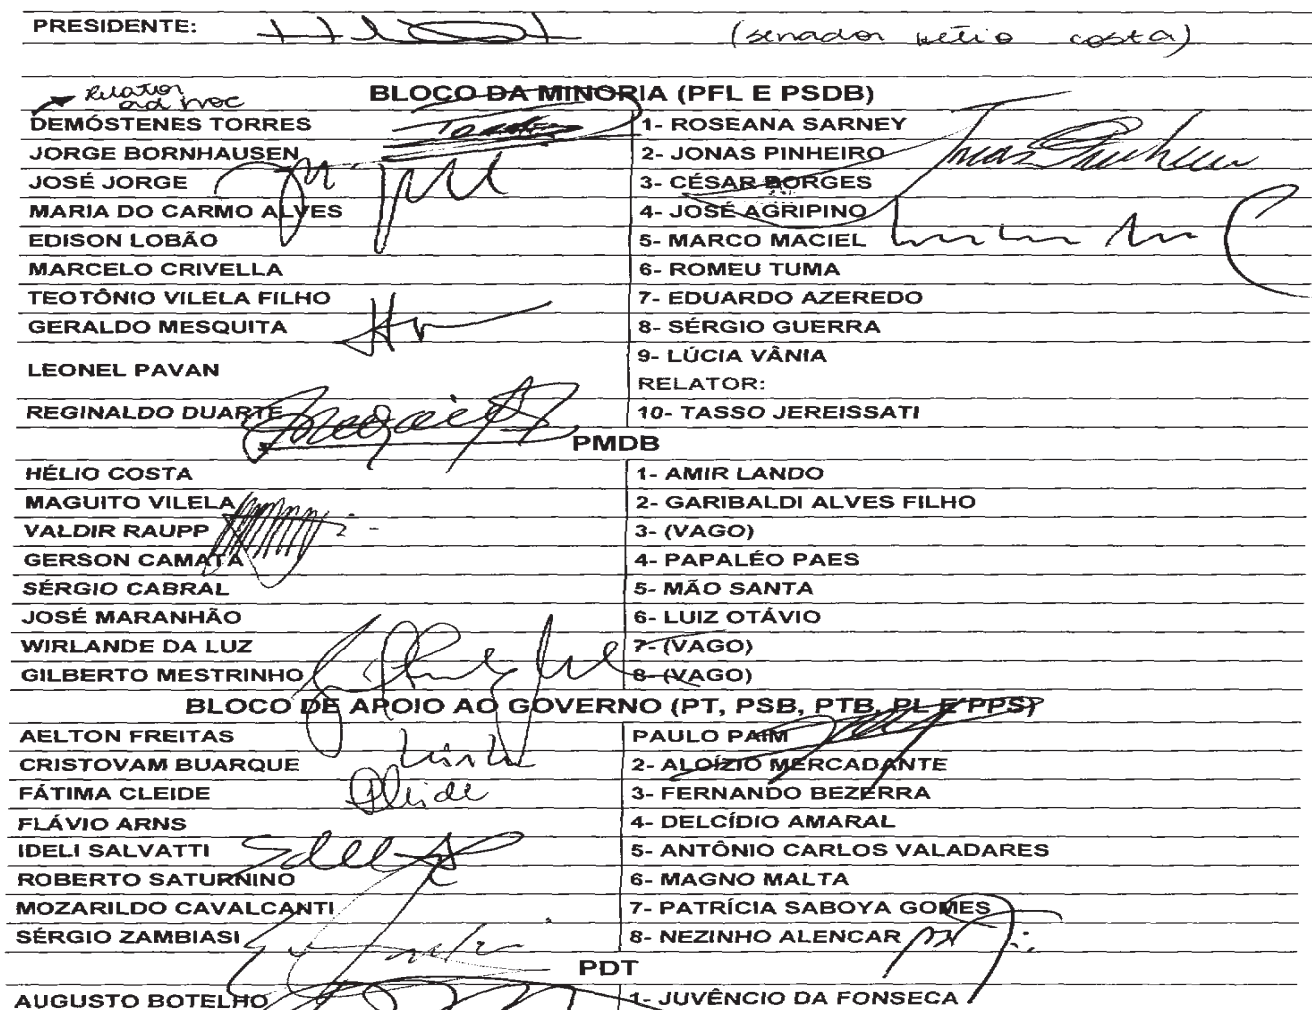 PRESIDENTE: (senador Hélio Costa)
Relator
ad hoc
BLOCO DA MINORIA (PFL E PSDB)
DEMÓSTENES TORRES 1- ROSEANA SARNEY
JORGE BORNHAUSEN 2- JONAS PINHEIRO
JOSÉ JORGE 3- CÉSAR BORGES
MARIA DO CARMO ALVES 4- JOSÉ AGRIPINO
EDISON LOBÃO 5- MARCO MACIEL
MARCELO CRIVELLA 6- ROMEU TUMA
TEOTÔNIO VILELA FILHO 7- EDUARDO AZEREDO
GERALDO MESQUITA 8- SÉRGIO GUERRA
LEONEL PAVAN 9- LÚCIA VÂNIA
RELATOR:
REGINALDO DUARTE 10- TASSO JEREISSATI
PMDB
HÉLIO COSTA 1- AMIR LANDO
MAGUITO VILELA 2- GARIBALDI ALVES FILHO
VALDIR RAUPP 3- (VAGO)
GERSON CAMATA 4- PAPALÉO PAES
SÉRGIO CABRAL 5- MÃO SANTA
JOSÉ MARANHÃO 6- LUIZ OTÁVIO
WIRLANDE DA LUZ 7- (VAGO)
GILBERTO MESTRINHO 8- (VAGO)
BLOCO DE APOIO AO GOVERNO (PT, PSB, PTB, PL E PPS)
AELTON FREITAS PAULO PAIM
CRISTOVAM BUARQUE 2- ALOÍZIO MERCADANTE
FÁTIMA CLEIDE Cleide 3- FERNANDO BEZERRA
FLÁVIO ARNS 4- DELCÍDIO AMARAL
IDELI SALVATTI 5- ANTÔNIO CARLOS VALADARES
ROBERTO SATURNINO 6- MAGNO MALTA
MOZARILDO CAVALCANTI 7- PATRÍCIA SABOYA GOMES
SÉRGIO ZAMBIASI 8- NEZINHO ALENCAR
PDT
AUGUSTO BOTELHO 1- JUVÊNCIO DA FONSECA